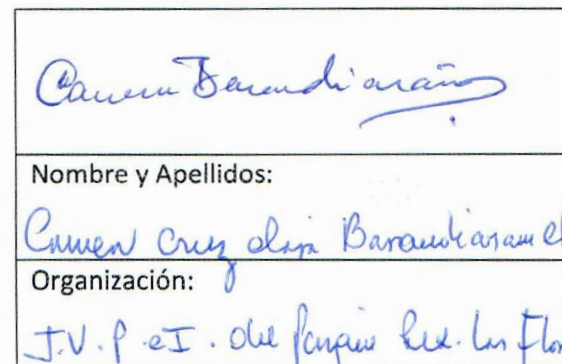 Carmen Barandiarán
Nombre y Apellidos:
Carmen Cruz Barandiaran
Organización:
J.V.P. e I. del Parque Res. Las Flo